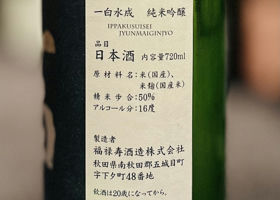 一白水成 純米吟醸
IPPAKUSUISEI
JYUNMAIGINJYO
品目
日本酒 内容量720ml
原材料名:米(国産)、
米麹(国産米)
精米歩合:50%
アルコール分:16度
製造者
福禄寿酒造株式会社
秋田県南秋田郡五城目町
字下夕町48番地
飲酒は20歳になってから。